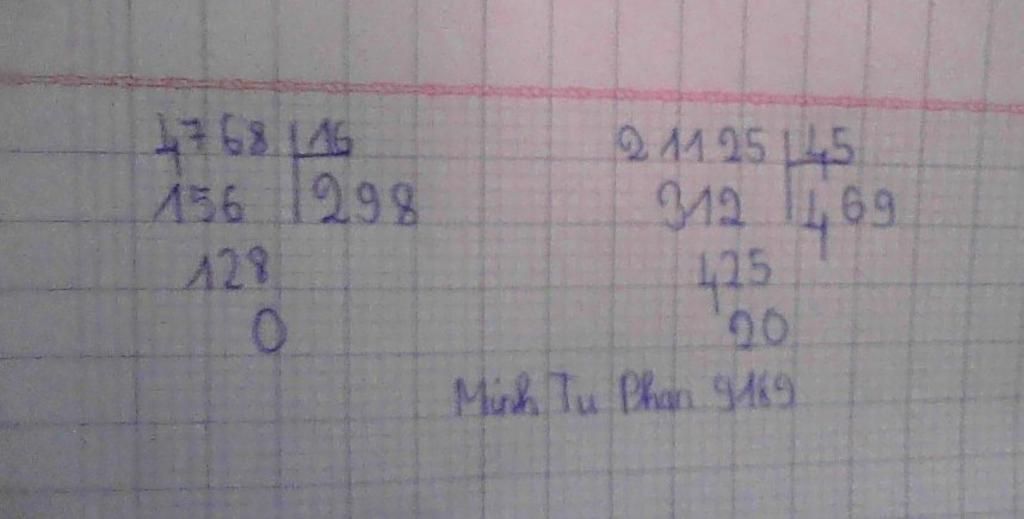 4768 16 21125 45
156 298 312 469
128 425
0 20
Minh Tu Phan 9169